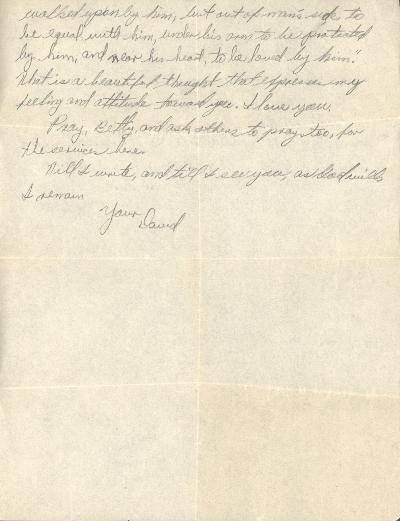 walked upon by him, but out of man's side to
be equal with him, under his arm to be protected
by him, and near his heart, to be loved by him."
That is a beautiful thought that expresses my
feeling and attitude toward you. I love you.
Pray, Betty, and ask others to pray, too, for
the services here.
Till I write, and till I see you, as God wills
I remain
Your
David